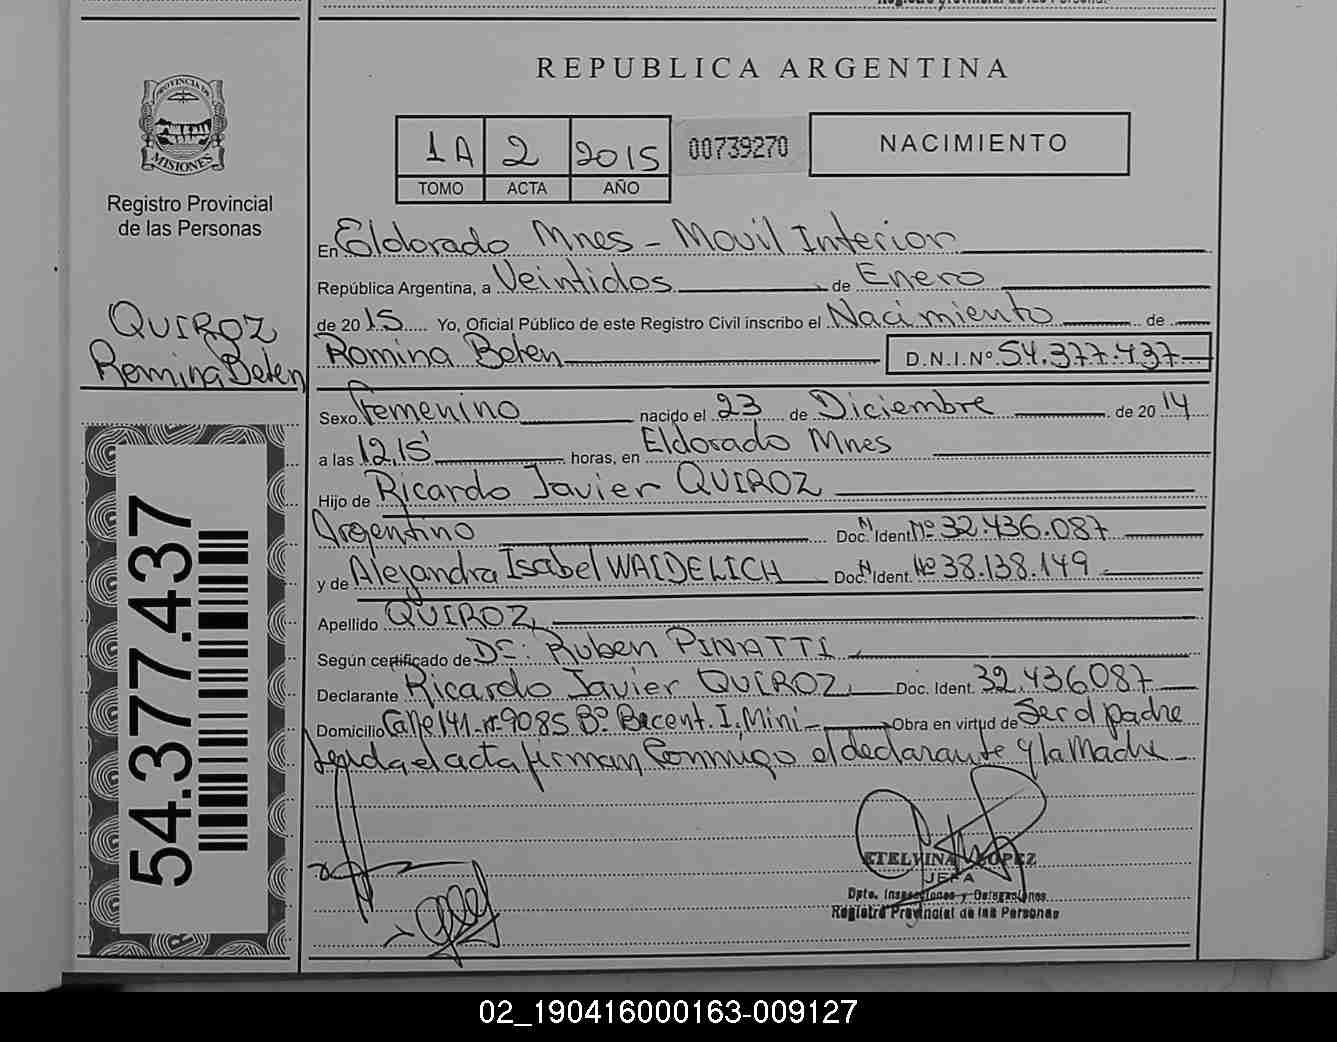 REPUBLICA ARGENTINA
PROVINCIA DE
MISIONES
Registro Provincial
de las Personas
QUIROZ
Romina Belen
54.377.437
1A 2 2015 00739270 NACIMIENTO
TOMO ACTA AÑO
En Eldorado Mnes - Movil Interior
República Argentina, a Veintidos de Enero
de 2015 Yo, Oficial Público de este Registro Civil inscribo el Nacimiento de
Romina Belen D.N.I.Nº 54.377.437
Sexo Femenino nacido el 23 de Diciembre de 2014
a las 12,15' horas, en Eldorado Mnes
Hijo de Ricardo Javier QUIROZ
Argentino Doc. Ident. Nº 32.436.087
y de Alejandra Isabel WAIDELICH Doc. Ident. Nº 38.138.149
Apellido QUIROZ
Según certificado de Dr: Ruben PINATTI
Declarante Ricardo Javier QUIROZ Doc. Ident. 32.436.087
Domicilio Calle 141 nº 9085 Bº I. Mini Obra en virtud de Ser el padre
leyda el acta firman conmigo el declarante y la Madre
ETELVINA LOPEZ
JEFA
Dpto. Inspecciones y Delegaciones
Registro Provincial de las Personas
02_190416000163-009127